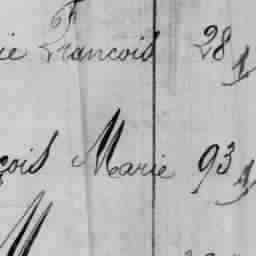 ie François 28
çois Marie 93
M